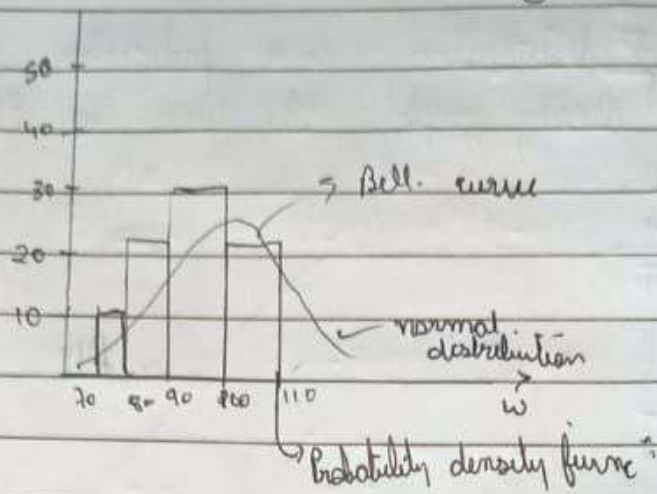 50
40
30
→ Bell. curve
20
10
normal
dostribution
70 80 90 100 110
w
Probability density func^n